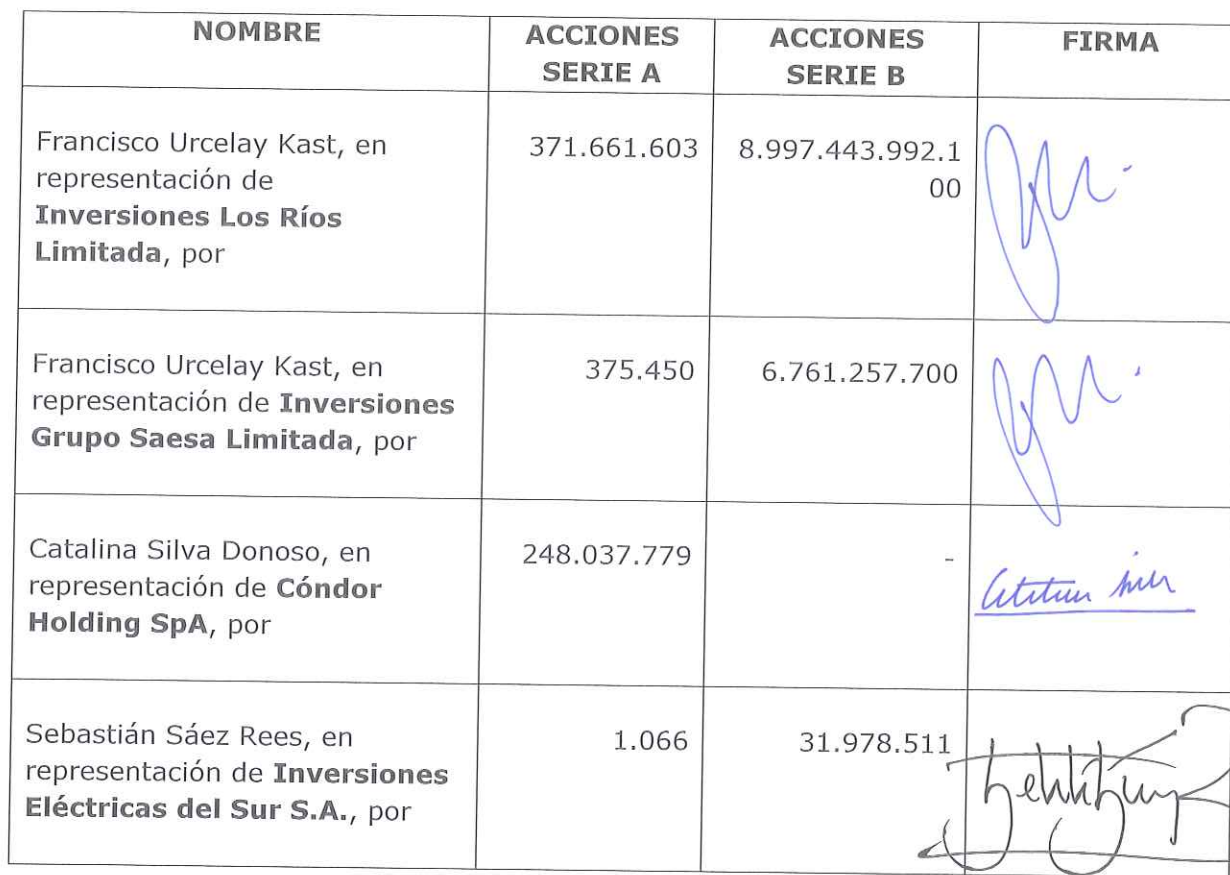 NOMBRE
ACCIONES
SERIE A
ACCIONES
SERIE B
FIRMA
Francisco Urcelay Kast, en
representación de
Inversiones Los Ríos
Limitada, por
371.661.603
8.997.443.992.1
00
Francisco Urcelay Kast, en
representación de Inversiones
Grupo Saesa Limitada, por
375.450
6.761.257.700
Catalina Silva Donoso, en
representación de Cóndor
Holding SpA, por
248.037.779
-
Sebastián Sáez Rees, en
representación de Inversiones
Eléctricas del Sur S.A., por
1.066
31.978.511